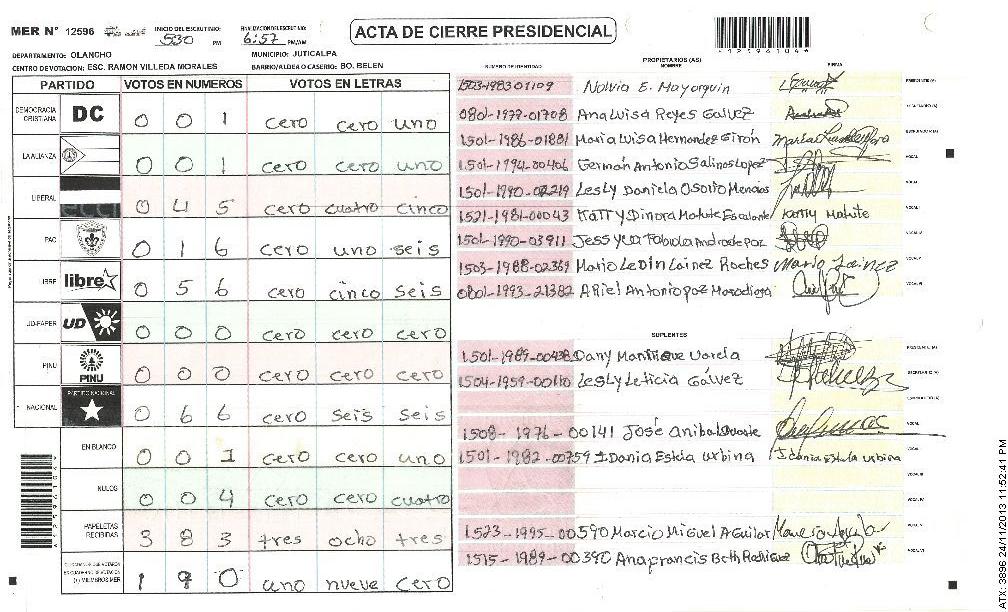 MER N° 12596
INICIO DEL ESCRUTINIO: 530 PM
FINALIZACION DEL ESCRUTINIO: 6:57 PM/AM
ACTA DE CIERRE PRESIDENCIAL
DEPARTAMENTO: OLANCHO
MUNICIPIO: JUTICALPA
CENTRO DE VOTACION: ESC. RAMON VILLEDA MORALES
BARRIO/ALDEA O CASERIO: BO. BELEN
PARTIDO VOTOS EN NUMEROS VOTOS EN LETRAS
DEMOCRACIA CRISTIANA DC 0 0 1 cero cero uno
LA ALIANZA 0 0 1 cero cero uno
LIBERAL 0 4 5 cero cuatro cinco
PAC 0 1 6 cero uno seis
LIBRE libre 0 5 6 cero cinco seis
UD-FAPER UD 0 0 0 cero cero cero
PINU PINU 0 0 0 cero cero cero
NACIONAL PARTIDO NACIONAL 0 6 6 cero seis seis
EN BLANCO 0 0 1 cero cero uno
NULOS 0 0 4 cero cero cuatro
PAPELETAS RECIBIDAS 3 8 3 tres ocho tres
1 9 0 uno nueve cero
NUMERO DE IDENTIDAD PROPIETARIOS (AS) NOMBRE FIRMA
1503-1983 01109 Nolvia E. Mayorquin
0801-1977-01708 Ana Luisa Reyes Galvez
1501-1986-01881 Maria Luisa Hernandez Girón
1501-1994-00406 Germán Antonio Salinas Lopez
1501-1990-02219 Lesly Daniela Osorto
1521-1981-00043 Katty Dinora Matute Escalante Katty Matute
1501-1990-03911 Jessyca Fabiola Andrade Paz
1503-1988-02369 Mario Ledin Lainez Roches Mario Lainez
0801-1993-21382 Ariel Antonio Paz
SUPLENTES
1501-1989-00438 Dany Manrique Varela
1504-1959-00110 Lesly Leticia Gálvez
1508-1976-00141 José Anibal
1501-1982-00759 Idania Estela Urbina Idania Estela Urbina
1523-1995-00590 Marcio Miguel Aguilar
1515-1989-00390 Anafrancis Beth Rodriguez
ATX: 3896 24/11/2013 11:52:41 PM